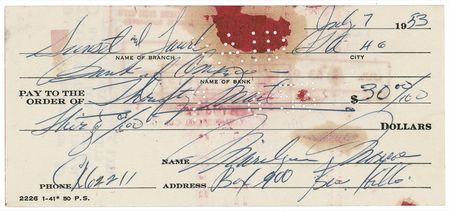 July 7 1953
Sunset & Laurel L.A. 46
NAME OF BRANCH CITY
Bank
NAME OF BANK
PAY TO THE
ORDER OF Thrifty Mart $30 00/100
Thirty 00/100 DOLLARS
NAME Marilyn Monroe
PHONE ADDRESS Box 900 Bev. Hills.
2226 1-41* 50 P.S.